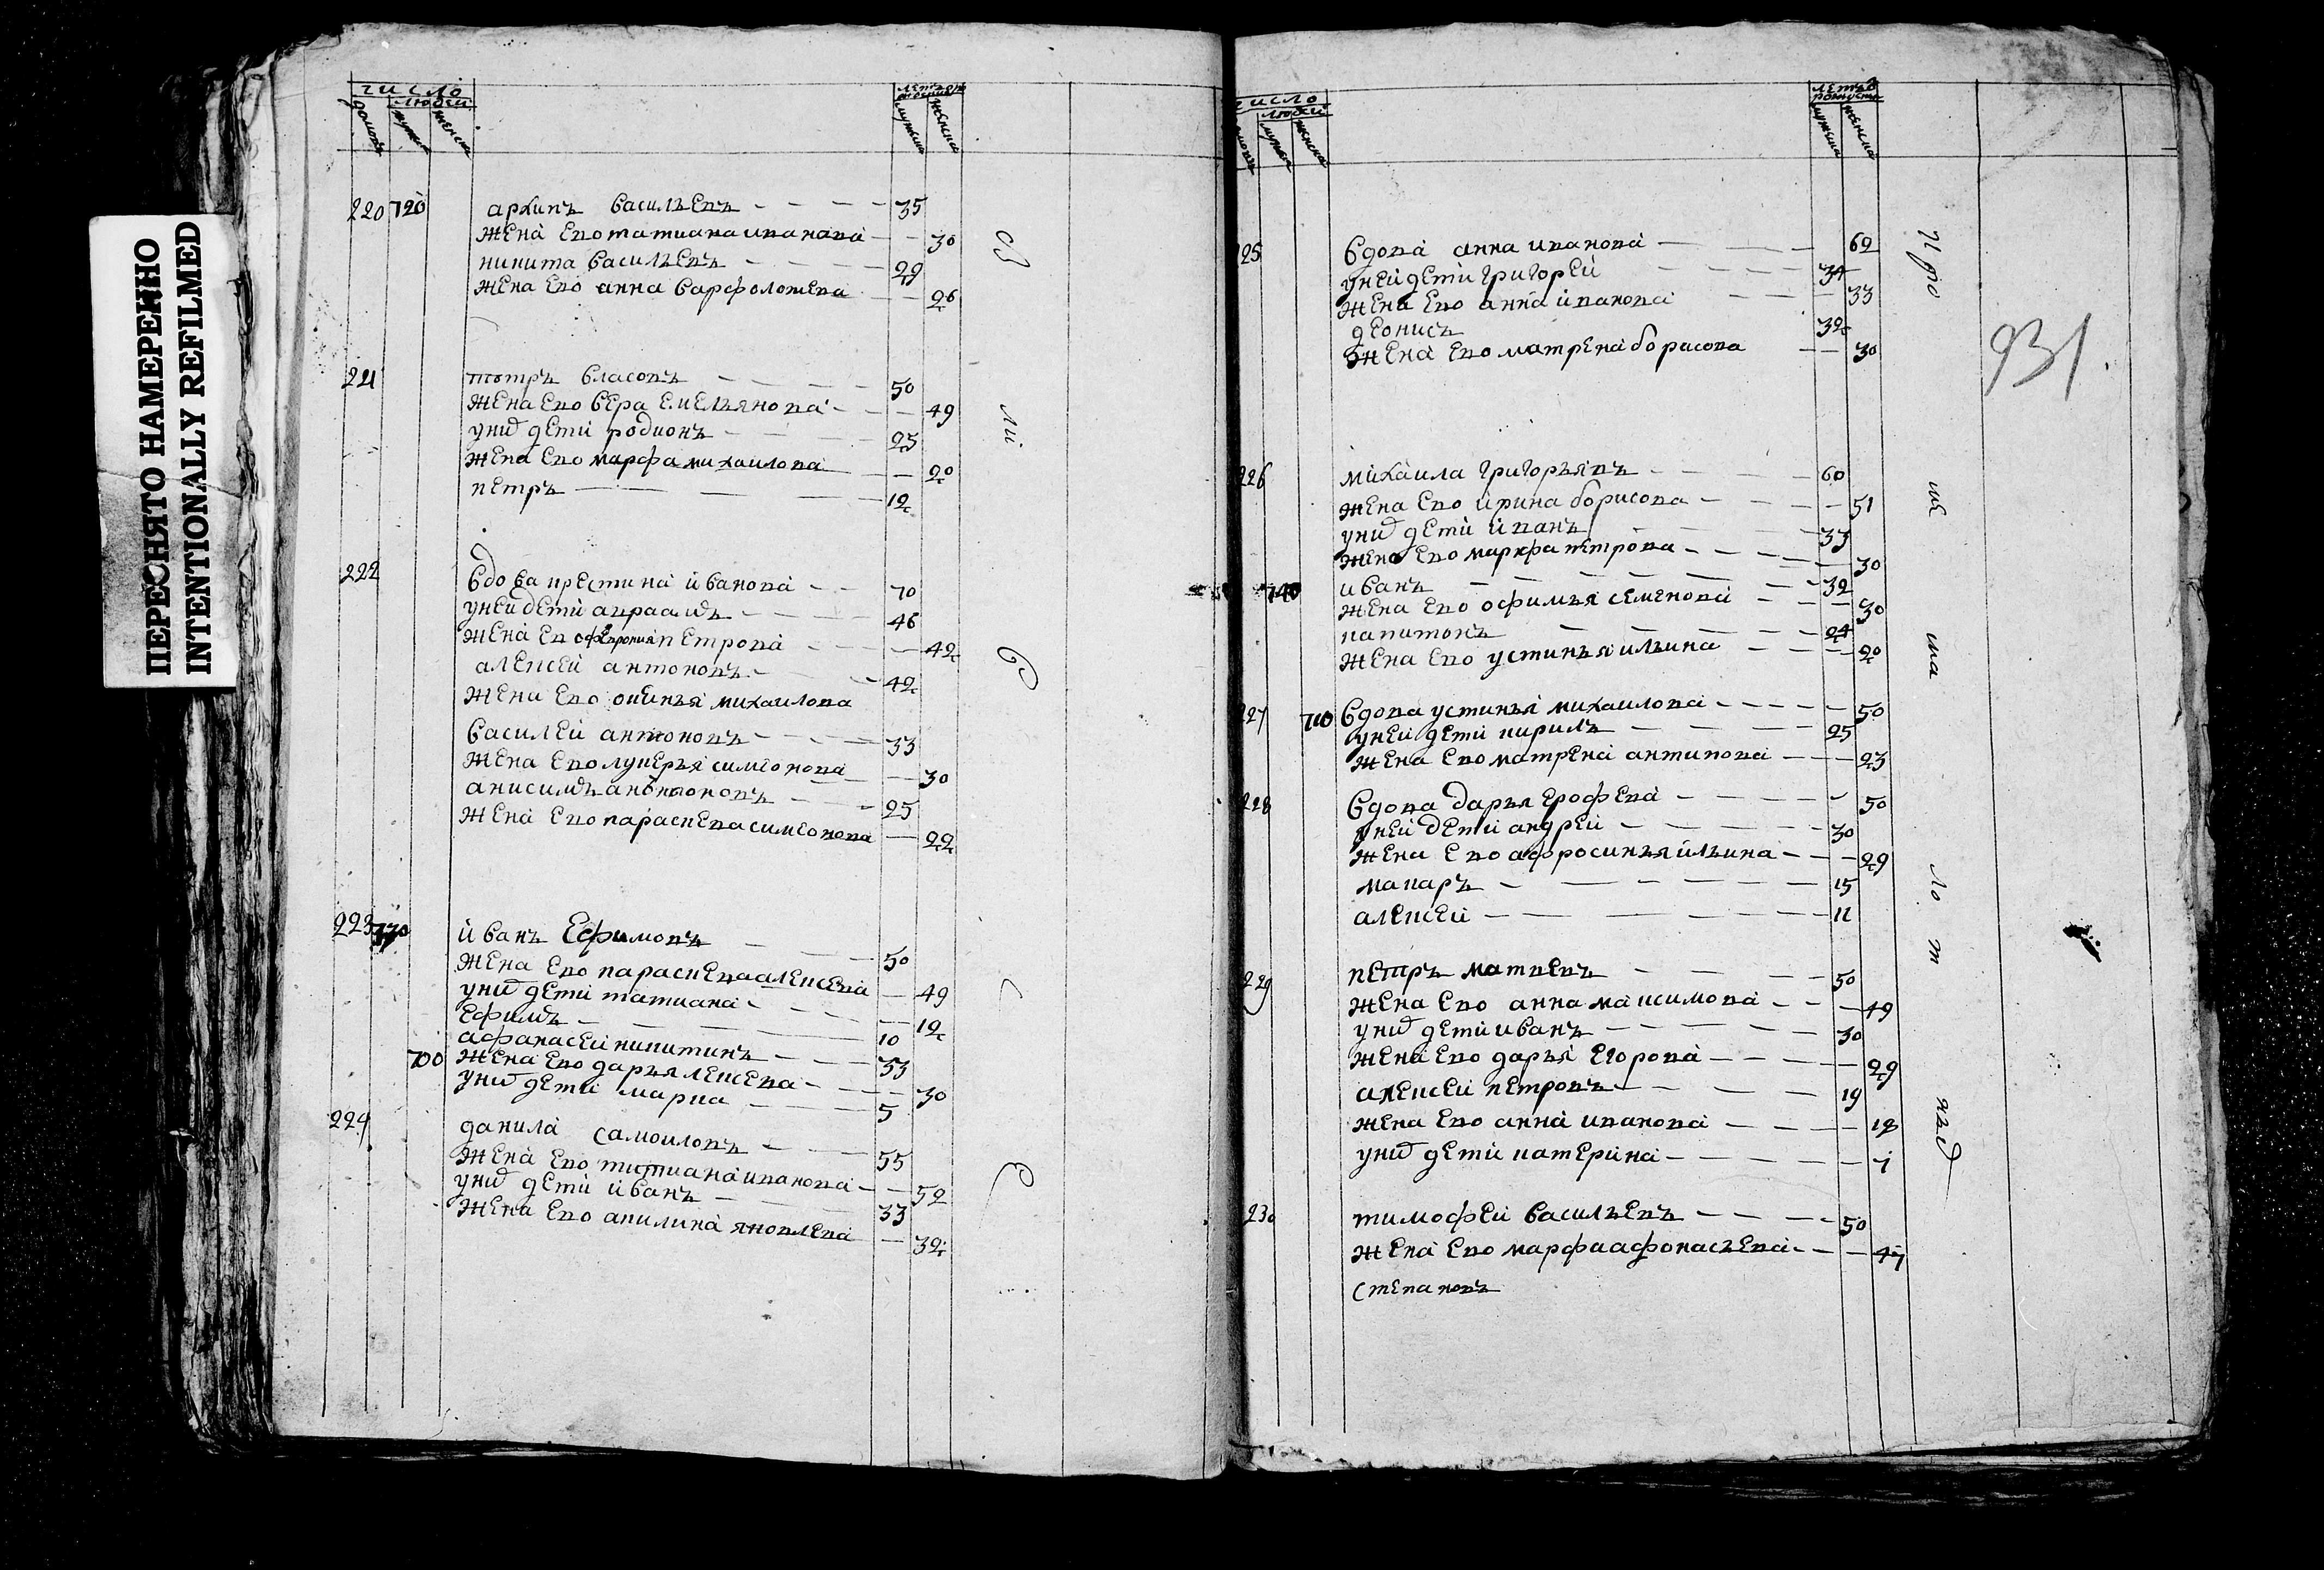 ПЕРЕСНЯТО НАМЕРЕННО
INTENTIONALLY REFILMED
число
людей
220 720 архипъ васильевъ 35
жена ево татиана иванова 30
никита васильевъ 29
жена ево анна варфоломева 26
221 петръ власовъ 50
жена ево вера емельянова 49
у них дети родионъ 25
жена ево марфа михаилова 20
петръ 12
222 вдова крестина иванова 70
у ней дети авраамъ 46
жена ево феврония петрова 42
алексей антоновъ 42
жена ево михаилова
василей антоновъ 33
жена ево лукерья симеонова 30
анисимъ антоновъ 25
жена ево параскева симеонова 22
223 730 иванъ Ефимовъ 50
жена ево параскева алексева 49
у них дети татиана 12
Ефимъ 10
афанасей никитинъ 53
700 жена ево дарья алексева 30
у них дети мариа 5
224 данила самоиловъ 55
жена ево татиана иванова 52
у них дети иванъ 33
жена ево акилина яковлева 32
число
людей
931
225 вдова анна иванова 62
у ней дети григорей 34
жена ево анна иванова 33
деонисъ 32
жена ево матрена борисова 30
226 михаила григорьявъ 60
жена ево ирина борисова 51
у них дети иванъ 33
жена ево марфа петрова 30
740 иванъ 32
жена ево офимья семенова 30
капитонъ 24
жена ево устинья ильина 20
227 710 вдова устинья михаилова 50
у ней дети кирилъ 25
жена ево матрена антипова 23
228 вдова дарья ерофева 50
у ней дети андрей 30
жена ево афросинья ильина 29
макаръ 15
алексей 11
229 петръ матвевъ 50
жена ево анна максимова 49
у них дети иванъ 30
жена ево дарья егорова 29
алексей петровъ 19
жена ево анна иванова 18
у них дети катерина 1
230 тимофей васильевъ 50
жена ево марфа афонасьева 47
степановъ